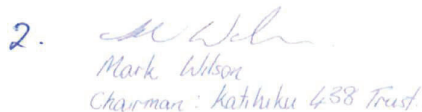 2.
Mark Wilson
Chairman: Katihiku 438 Trust.